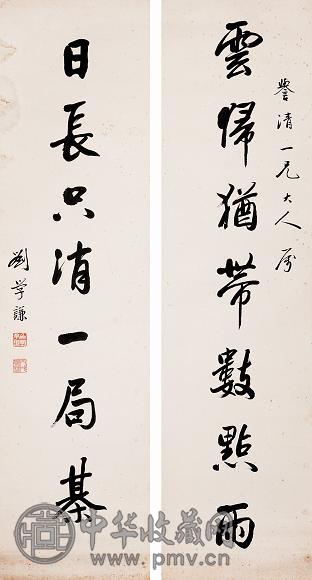 譽清一兄大人属
雲歸猶帶數點雨
日長只消一局棊
劉学謙
中华收藏网
www.pmv.cn